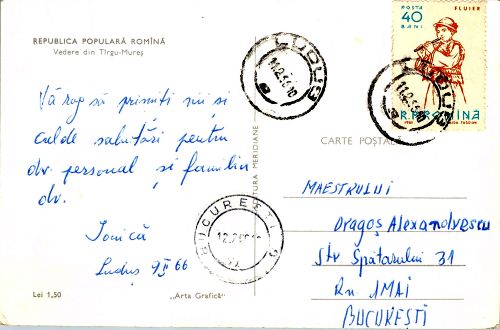 REPUBLICA POPULARĂ ROMÎNĂ
Vedere din Tîrgu-Mureș
Vă rog să primiți mii și
calde salutări pentru
dv. personal și familia
dv.
Ionică
Luduș 9 II 66
Lei 1,50
„Arta Grafică”
TURA MERIDIANE
LUDUȘ
BUCUREȘTI
POȘTA
40
BANI
FLUIER
R.P.ROMINĂ
1961
LUDUȘ
CARTE POȘTALĂ
MAESTRULUI
Dragoș Alexandrescu
Str Spătarului 31
Rn 1 MAI
BUCUREȘTI